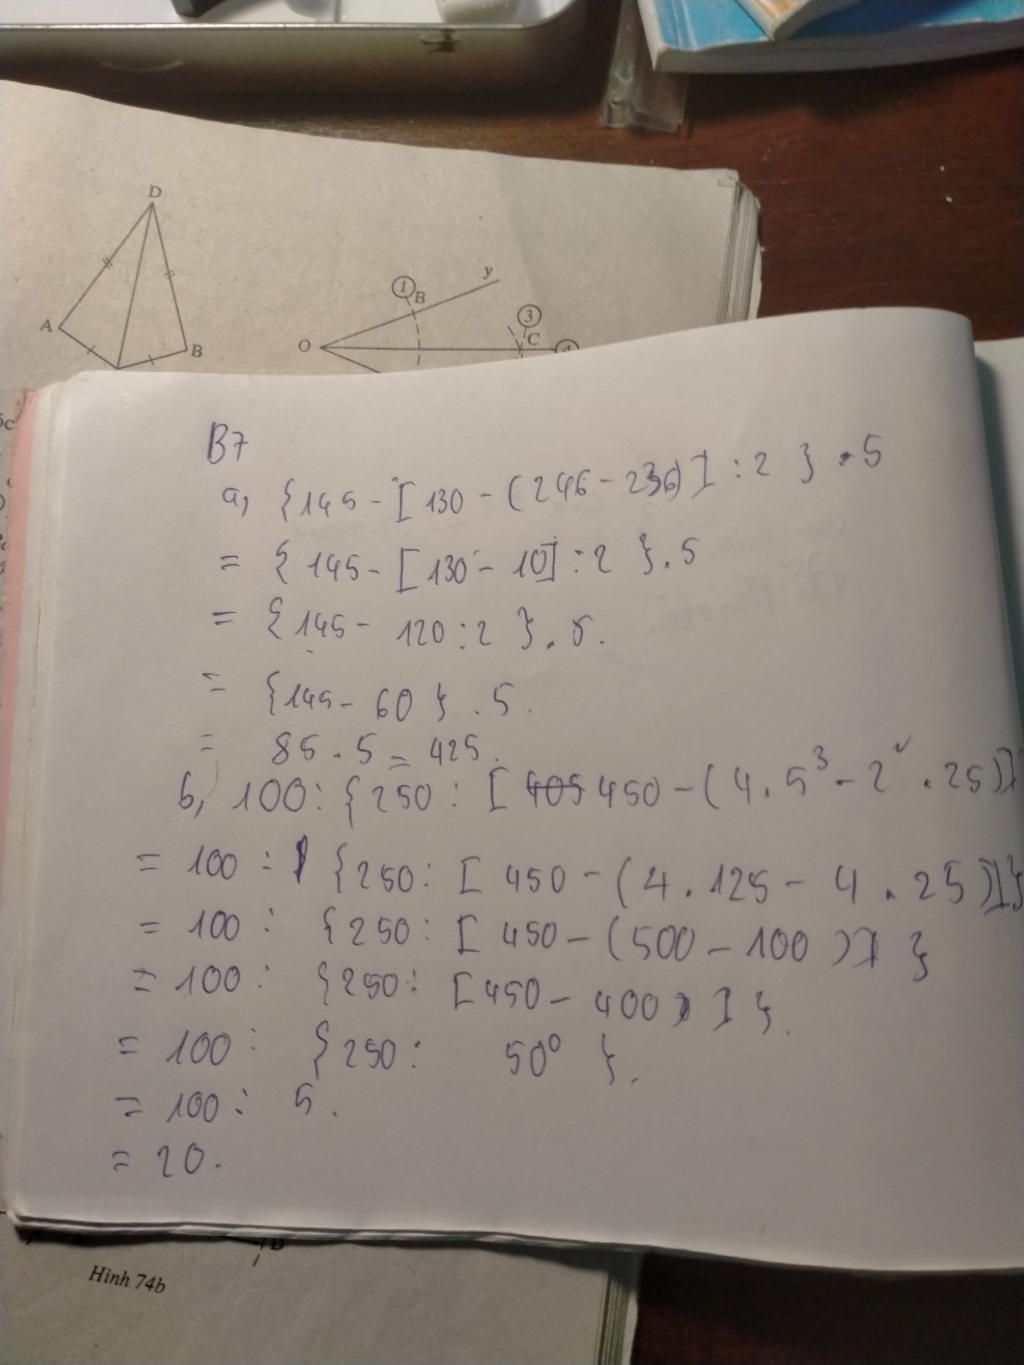 D
A
B
O
1
B
y
3
C
B7
a, {145 - [130 - (246 - 236)] : 2 } . 5
= { 145 - [130 - 10] : 2 } . 5
= {145 - 120 : 2 } . 5.
= {145 - 60 } . 5.
= 85 . 5 = 425.
b, 100 : {250 : [ 405 450 - (4 . 5³ - 2² . 25)]}
= 100 : {250 : [ 450 - (4 . 125 - 4 . 25)]}
= 100 : {250 : [ 450 - (500 - 100 )] }
= 100 : {250 : [450 - 400 ] }.
= 100 : {250 : 50⁰ }.
= 100 : 5.
= 20.
Hình 74b